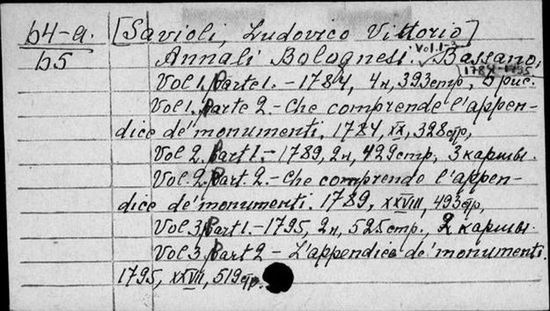 64-a.
65
[Savioli, Ludovico Vittorio]
Annali Bolognesi. Vol. 1-3 Bassano,
1784-1795
Vol 1. Parte 1. - 1784, 4н, 393стр, рис.
Vol 1. Parte 2. - Che comprende l'appen-
dice de' monumenti. 1784, XX, 328стр,
Vol 2. Part 1. - 1789, 2н, 429стр, 3 карты.
Vol 2. Part. 2. - Che comprende l'appen-
dice de' monumenti. 1789, XXVIII, 493стр,
Vol 3. Part 1. - 1795, 2н, 525стр., 2 карты.
Vol 3. Part 2 - L'appendice de' monumenti.
1795, XXVII, 519стр.